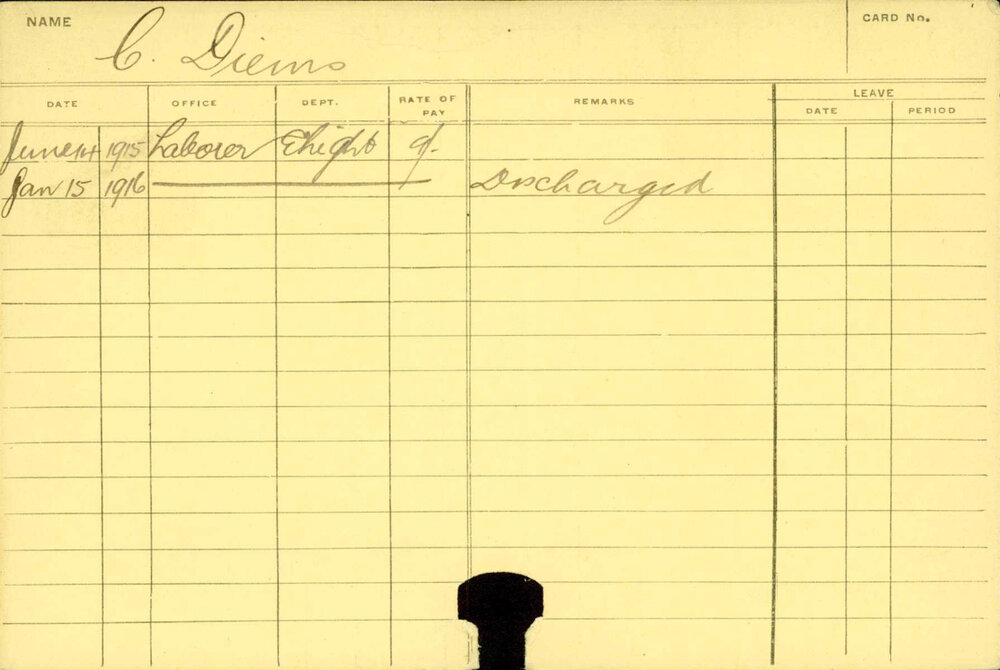 NAME C. Diems CARD No.
DATE OFFICE DEPT. RATE OF PAY REMARKS LEAVE
DATE PERIOD
June 14 1915 Laborer
Jan 15 1916 Discharged